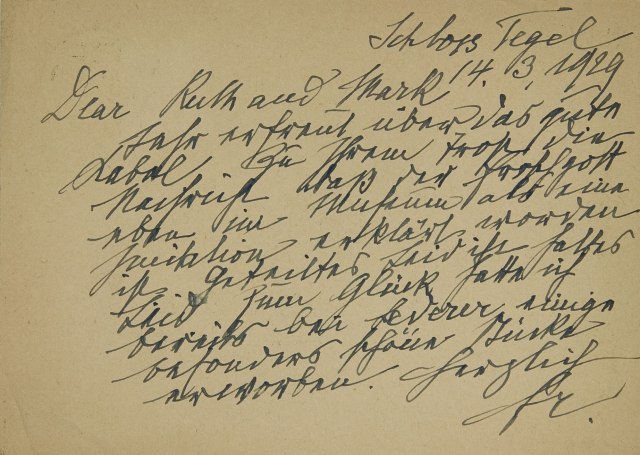 Schloss Tegel
14. 3. 1929
Dear Ruth and Mark
Sehr erfreut über das gute
Kabel. Zu Ihrem Trost die
Nachricht daß der Froschgott
eben im Museum als eine
Imitation erklärt worden
ist. Geteiltes Leid ist halbes
Leid. Zum Glück hatte ich
bereits bei Lederer einige
besonders schöne Stücke
erworben. Herzlich
Fr.